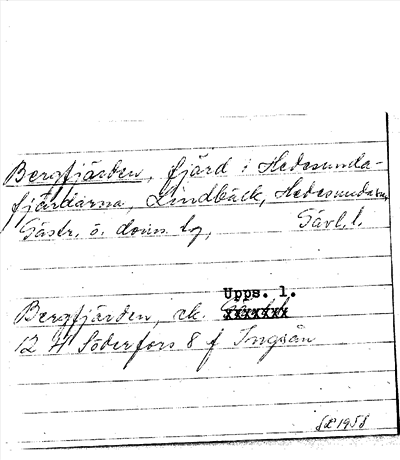 Bergfjärden, fjärd i Hedesunda-
fjärdarna, Lindbäck, Hedesunda sn,
Gästr. ö. doms. lg, Gävl. l.
Upps. l.
Bergfjärden, ek.
12 H Söderfors 8 f Ingsån
1958